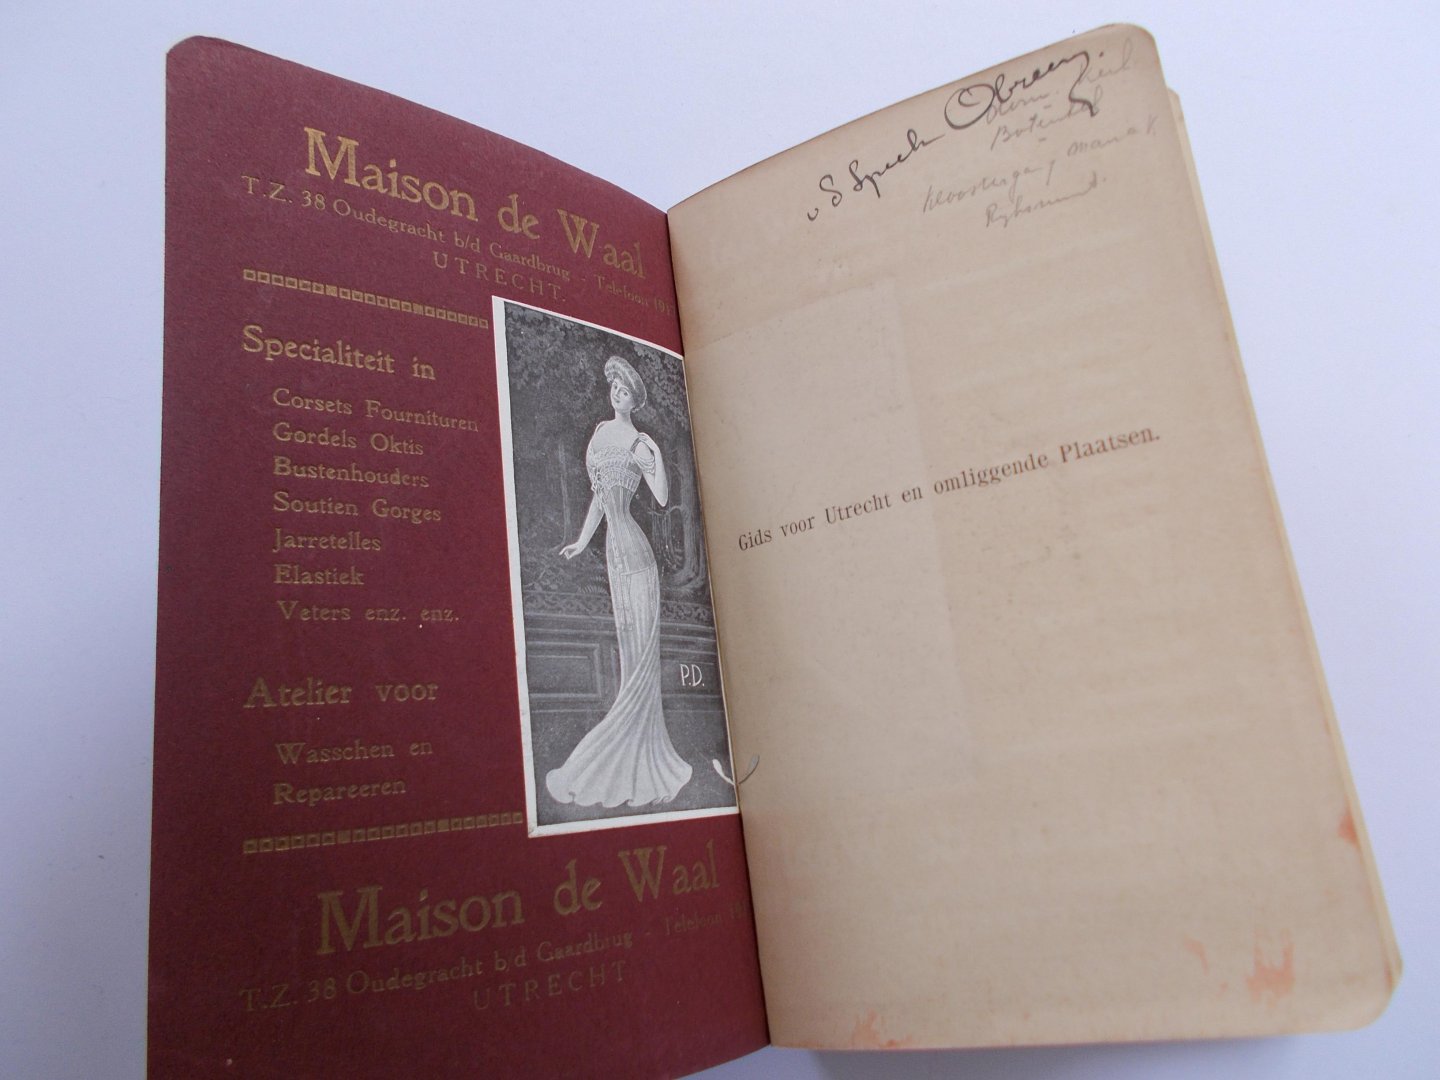 Maison de Waal
T.Z. 38 Oudegracht b/d Gaardbrug - Telefoon
UTRECHT.
Specialiteit in
Corsets Fournituren
Gordels Oktis
Bustenhouders
Soutien Gorges
Jarretelles
Elastiek
Veters enz. enz.
Atelier voor
Wasschen en
Repareeren
P.D.
Maison de Waal
T.Z. 38 Oudegracht b/d Gaardbrug - Telefoon
UTRECHT.
v S Speek Obreen.
Gids voor Utrecht en omliggende Plaatsen.